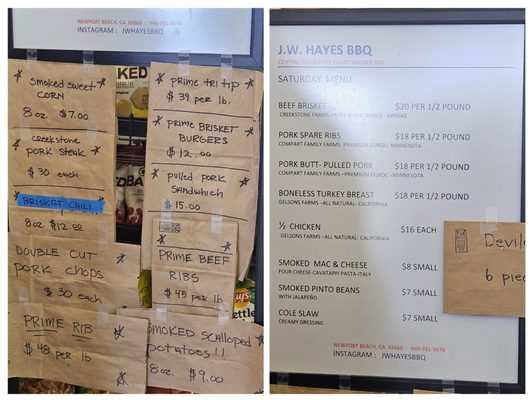 NEWPORT BEACH, CA. 92660 949-391-5676
INSTAGRAM : JWHAYESBBQ
Smoked sweet
CORN
8 oz. $7.00
Creekstone
PORK STEAK
$30 each
BRISKET CHILI
8 oz. $12.00
DOUBLE CUT
PORK CHOPS
$30 each
PRIME RIB
$48 per lb.
KED
PRIME TRI TIP
$39 per lb.
PRIME BRISKET
BURGERS
$12.00
pulled PORK
Sandwhich
$15.00
PRIME BEEF
RIBS
$45 per lb.
SMOKED Schlloped
Potatoes!!
8oz. $9.00
J.W. HAYES BBQ
CENTRAL TEXAS STYLE WOOD SMOKED BBQ
SATURDAY MENU
BEEF BRISKET $20 PER 1/2 POUND
CREEKSTONE FARMS-PRIME BLACK ANGUS - KANSAS
PORK SPARE RIBS $18 PER 1/2 POUND
COMPART FAMILY FARMS -PREMIUM DUROC- MINNESOTA
PORK BUTT- PULLED PORK $18 PER 1/2 POUND
COMPART FAMILY FARMS -PREMIUM DUROC- MINNESOTA
BONELESS TURKEY BREAST $18 PER 1/2 POUND
GELSONS FARMS -ALL NATURAL- CALIFORNIA
½ CHICKEN $16 EACH
GELSONS FARMS -ALL NATURAL- CALIFORNIA
SMOKED MAC & CHEESE $8 SMALL
FOUR CHEESE-CAVATAPPI PASTA-ITALY
SMOKED PINTO BEANS $7 SMALL
WITH JALAPEÑO
COLE SLAW $7 SMALL
CREAMY DRESSING
Devile
6 pie
NEWPORT BEACH, CA. 92660 : 949-391-5676
INSTAGRAM : JWHAYESBBQ